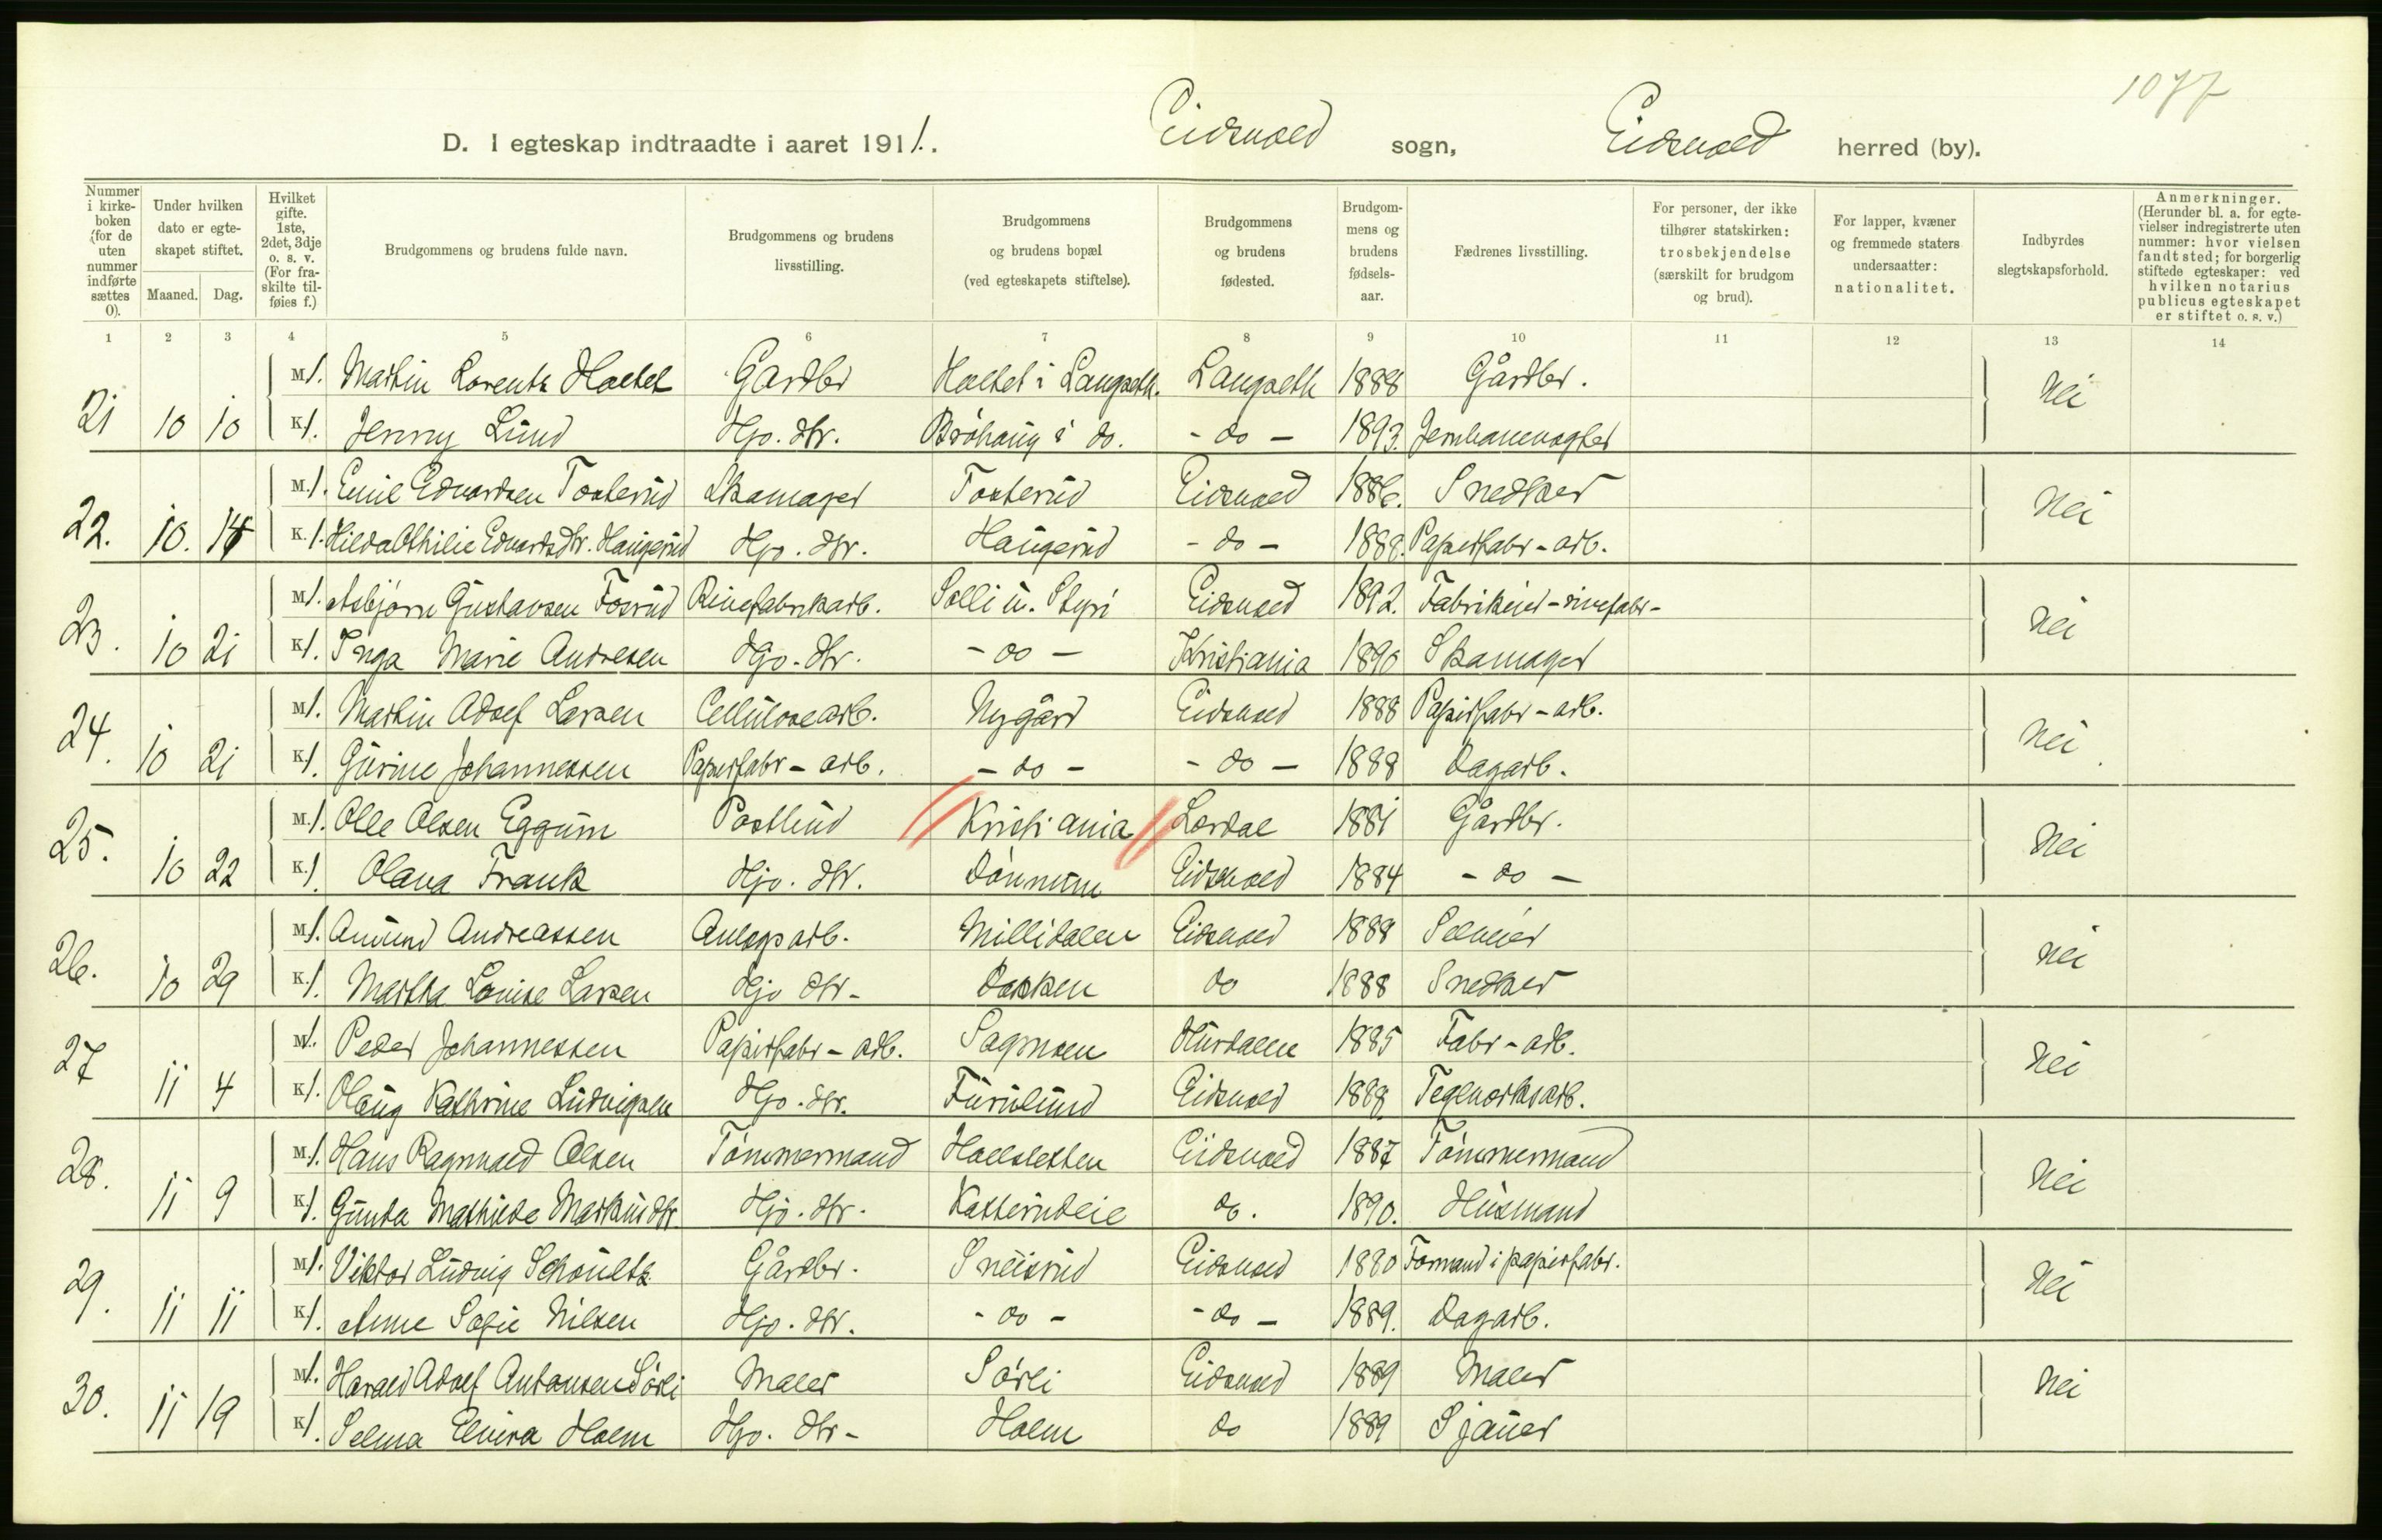 1077
D. I egteskap indtraadte i aaret 1911. Eidsvold sogn, Eidsvold herred (by).
Nummer i kirkeboken (for de uten nummer indførte sættes 0).
Under hvilken dato er egteskapet stiftet.
Maaned. Dag.
Hvilket gifte. 1ste, 2det, 3dje o. s. v. (For fraskilte tilføies f.)
Brudgommens og brudens fulde navn.
Brudgommens og brudens livsstilling.
Brudgommens og brudens bopæl (ved egteskapets stiftelse).
Brudgommens og brudens fødested.
Brudgommens og brudens fødselsaar.
Fædrenes livsstilling.
For personer, der ikke tilhører statskirken: trosbekjendelse (særskilt for brudgom og brud).
For lapper, kvæner og fremmede staters undersaatter: nationalitet.
Indbyrdes slegtskapsforhold.
Anmerkninger. (Herunder bl. a. for egtevielser indregistrerte uten nummer: hvor vielsen fandt sted; for borgerlig stiftede egteskaper: ved hvilken notarius publicus egteskapet er stiftet o. s. v.)
1 2 3 4 5 6 7 8 9 10 11 12 13 14
M 1. Martin Lorentz Holtet Gardbr Holtet i Langseth. Langseth 1888 Gårdbr. Nei
21 10 10 K 1. Jenny Lund Hjo. dtr. Bröhaug i do. - do - 1893. Jernbanevogter
M. 1. Emil Edvardsen Tosterud Skomager Tosterud Eidsvold 1886. Snedker Nei
22. 10. 14 K. 1. Hilda Othilie Edvardsdtr. Haugerud Hjo. dtr. Haugerud - do - 1888. Papirfabr - arb.
M 1. Asbjörn Gustavsen Fosrud Rivefabrikarb. Solli u. Styri Eidsvold 1892. Fabrikeier - rivefabr - Nei
23. 10 21 K 1. Inga Marie Andresen Hjo. dtr. - do - Kristiania 1890 Skomager
M 1. Martin Adolf Larsen Cellulosearb. Nygård Eidsvold 1888 Papirfabr - arb. Nei
24. 10 21 K 1. Gurine Johannessen Papirfabr - arb. - do - - do - 1888 Dagarb.
M. 1. Olle Olsen Eggum Postbud Kristiania Lærdal 1881 Gårdbr. Nei
25. 10 22 K. 1. Olava Frank Hjo. dtr. Dönnum Eidsvold 1884 - do -
M 1. Amund Andreassen Anlægsarb. Millidalen Eidsvold 1888 Selveier Nei
26. 10 29 K. 1. Martha Lovise Larsen Hjo dtr - Dokken do 1888 Snedker
M 1. Peder Johannessen Papirfabr - arb. Sagmoen Hurdalen 1885 Fabr - arb. Nei
27 11 4 K 1. Olaug Kathrine Ludvigsen Hjo. dtr. Furulund Eidsvold 1888 Teglverksarb.
M 1. Hans Ragnvald Olsen Tömmermand Holsletten Eidsvold 1887 Tömmermand Nei
28. 11 9 K 1. Gunda Mathilde Markusdtr. Hjo. dtr. Katterudeie do. 1890. Husmand
M 1. Viktor Ludvig Schoultz Gårdbr. Sneisrud Eidsvold 1880 Formand i papirfabr. Nei
29. 11 11 K 1. Anne Sofie Nilsen Hjo. dtr. - do - - do - 1889. Dagarb.
M 1. Harald Adolf Antonsen Sörli Maler Sörli Eidsvold 1889 Maler Nei
30. 11 19 K 1. Selma Elvira Holm Hjo. dtr - Holm do 1889 Sjauer